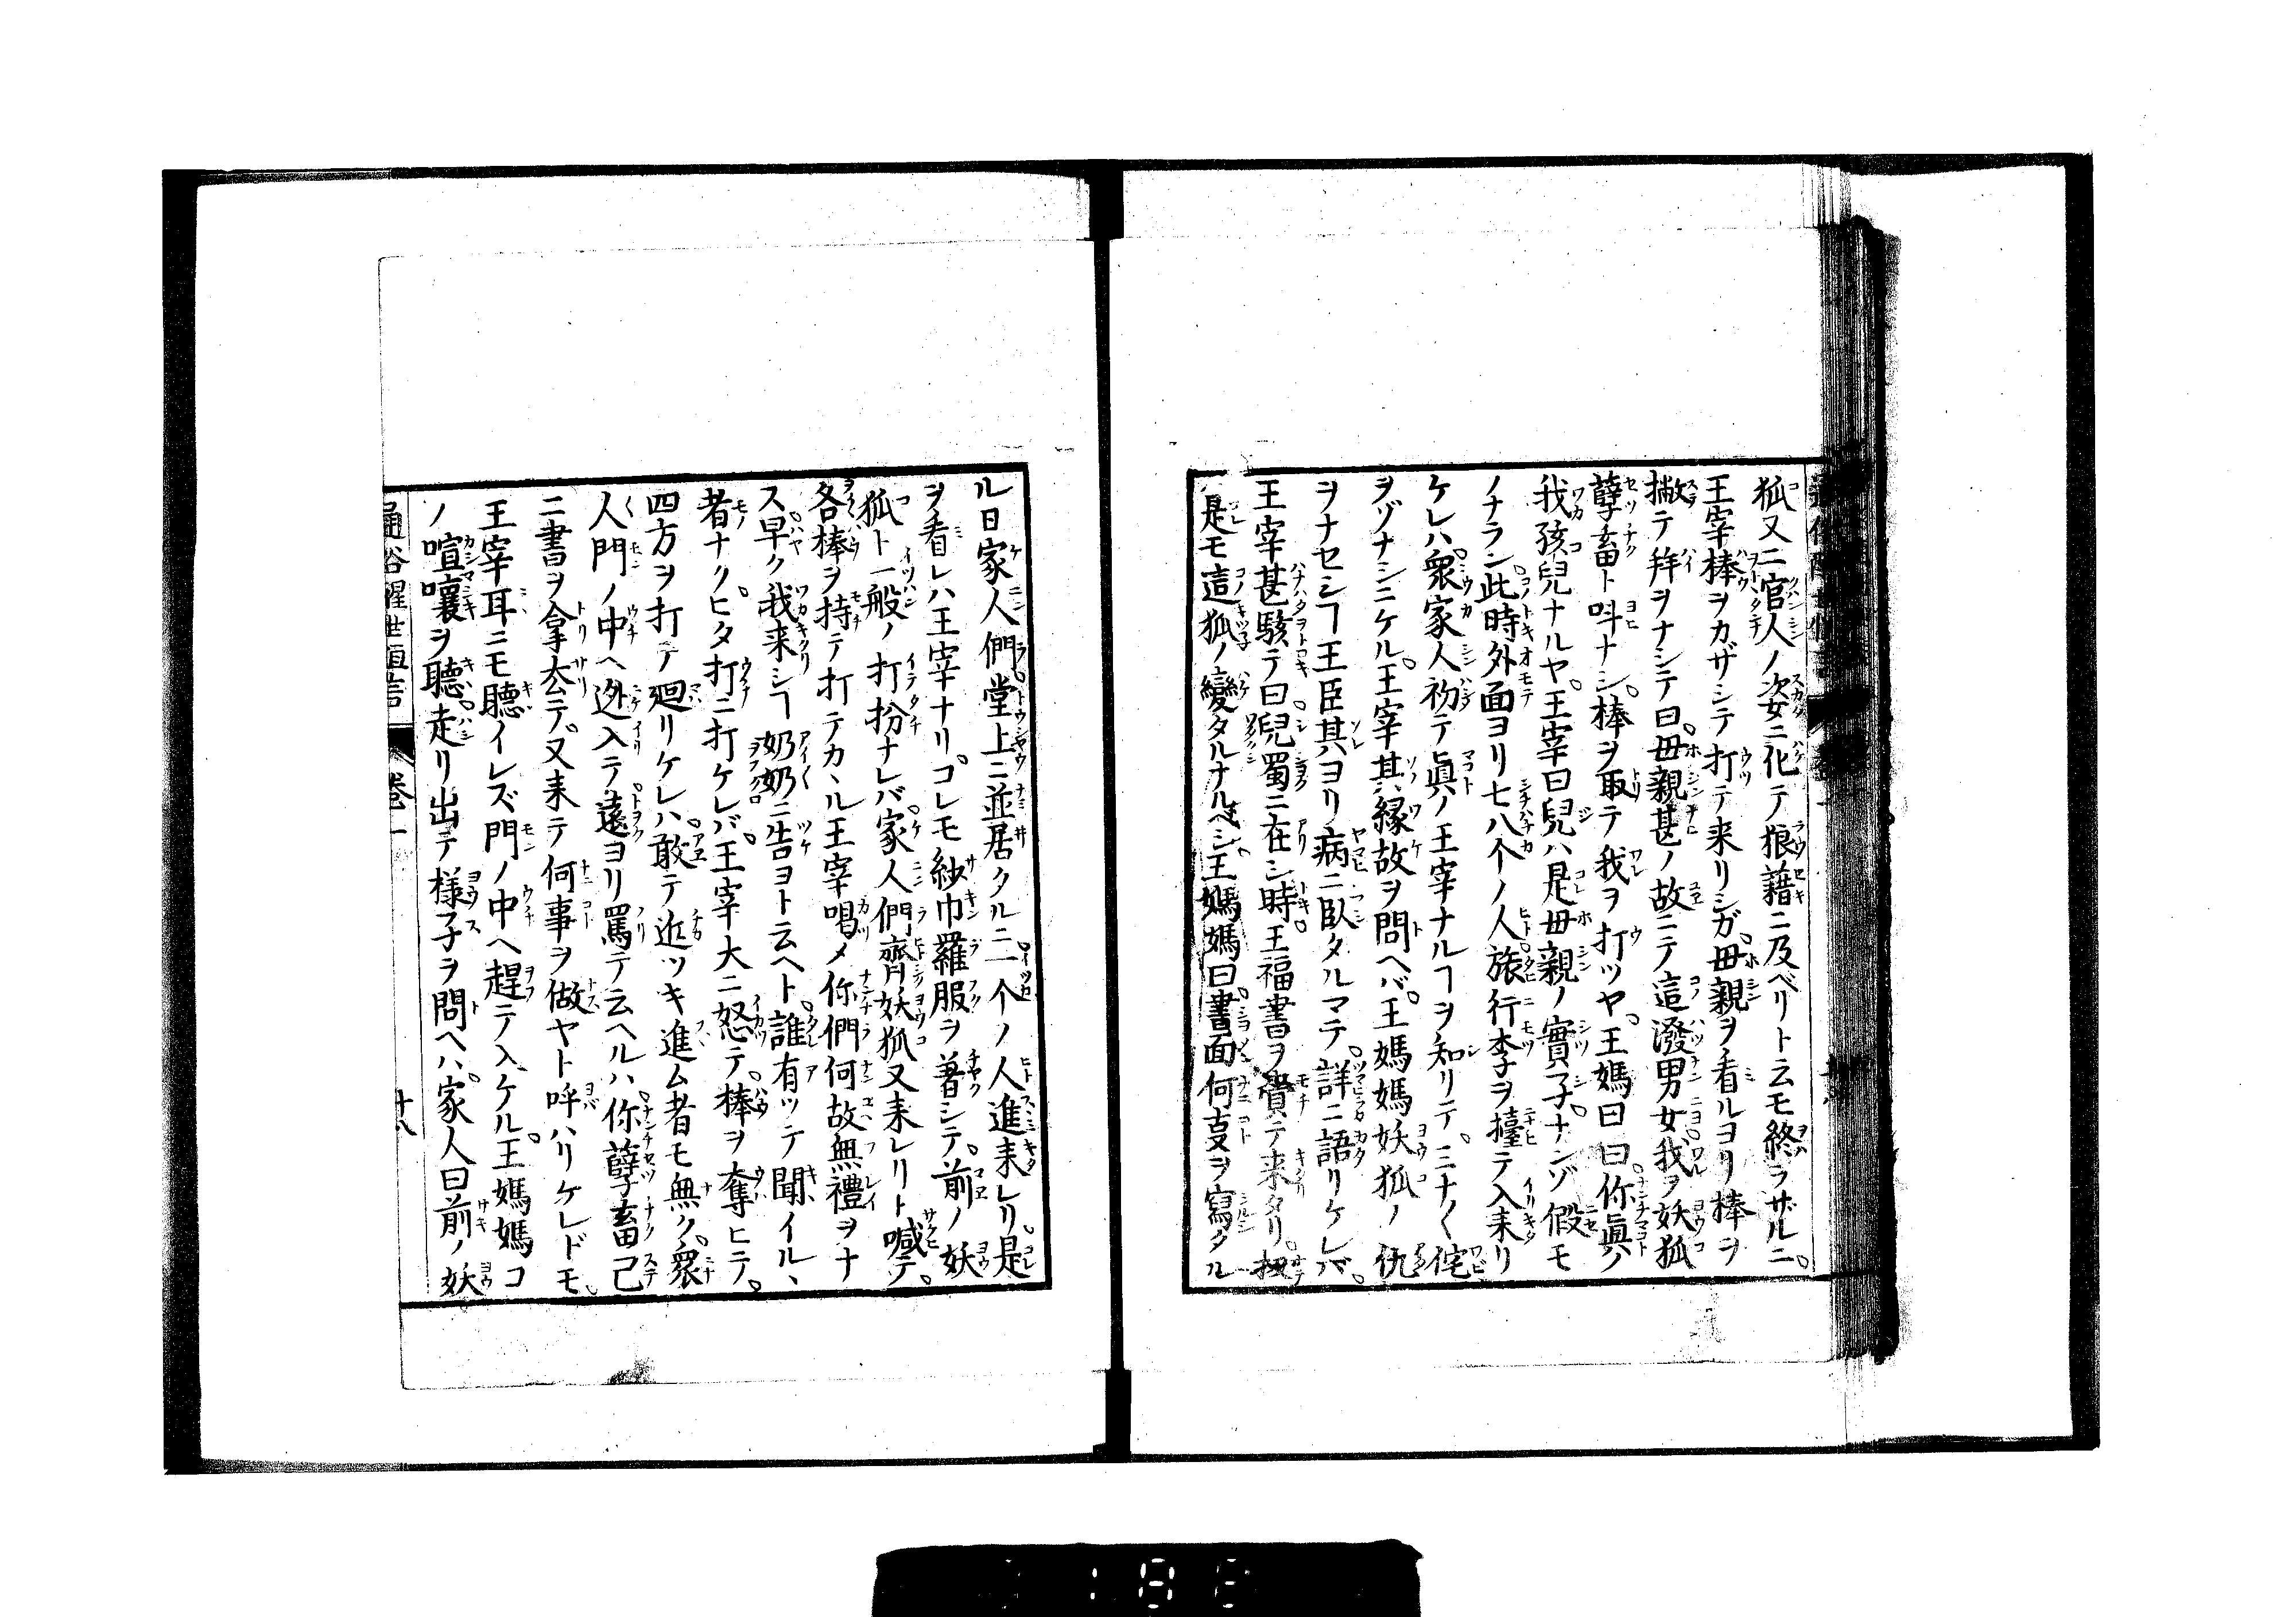 狐又ニ官人ノ姿ニ化テ狼藉ニ及ベリト云モ終ラザルニ。
王宰棒ヲカザシテ打テ来リシガ。毋親ヲ看ルヨリ棒ヲ
撇テ拜ヲナシテ曰。毋親甚ノ故ニテ這潑男女我ヲ妖狐
孽畜ト呌ナシ。棒ヲ取テ我ヲ打ツヤ。王媽曰曰。你眞ノ
我孩兒ナルヤ。王宰曰兒ハ是毋親ノ實子。ナンゾ假モ
ノナラン。此時外面ヨリ七八个ノ人。旅行李ヲ擡テ入来リ
ケレハ。衆家人初テ眞ノ王宰ナルヿヲ知リテ。ミナ〱侘
ヲゾナシニケル。王宰其縁故ヲ問ヘバ。王媽媽妖狐ノ仇
ヲナセシヿ王臣其ヨリ病ニ臥タルマテ。詳ニ語リケレバ。
王宰甚駭テ曰。兒蜀ニ在シ時。王福書ヲ賷テ来タリ。扨
ハ是モ這狐ノ變タルナルベシ。王媽媽曰。書面何叓ヲ寫タル
ル日家人們。堂上ニ並居タルニ。一个ノ人進来レリ。是
ヲ看レハ王宰ナリ。コレモ紗巾羅服ヲ着シテ。前ノ妖
狐ト一般ノ打扮ナレバ。家人們齊妖狐又来レリト喊テ。
各棒ヲ持テ打テカヽル王宰喝メ你們何故無禮ヲナ
ス。早ク我来シヿ奶奶ニ告ヨト云ヘト。誰有ッテ聞イルヽ
者ナク。ヒタ打ニ打ケレバ。王宰大ニ怒テ。棒ヲ奪ヒテ。
四方ヲ打テ廻リケレハ。敢テ近ツキ進ム者モ無ク。衆
人門ノ中ヘ迯入テ。遠ヨリ罵テ云ヘルハ。你孽畜己
ニ書ヲ拿去テ。又来テ何事ヲ做ヤト呼ハリケレドモ。
王宰耳ニモ聽イレズ門ノ中ヘ趕テ入ケル。王媽媽コ
ノ喧嚷ヲ聽。走リ出テ様子ヲ問ヘハ。家人曰前ノ妖
通俗醒世恒言
卷一
十八